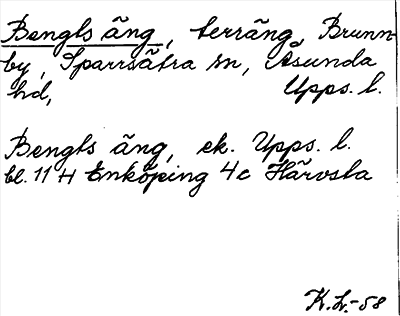 Bengts äng, terräng, Brunn-
by, Sparrsätra sn, Åsunda
hd, Upps. l.
Bengts äng, ek. Upps. l.
bl. 11 H Enköping 4c Härvsta
K.L.-58